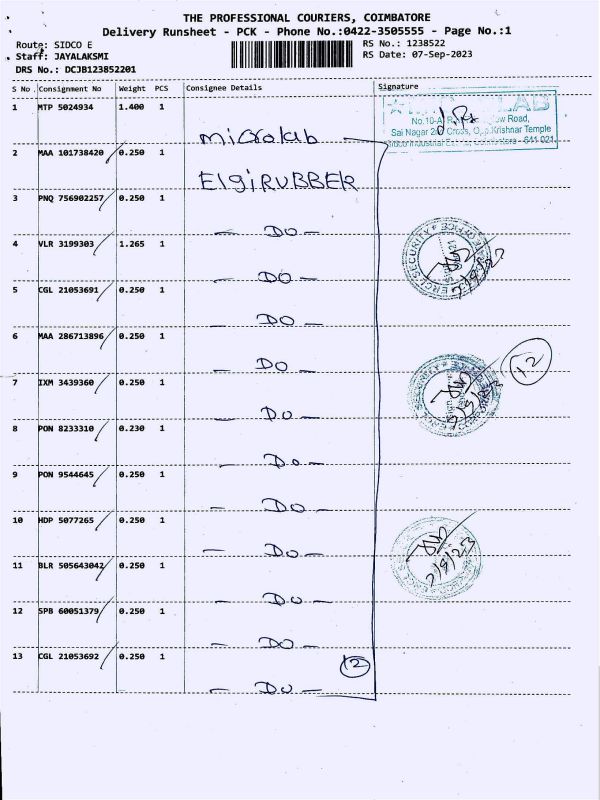 THE PROFESSIONAL COURIERS, COIMBATORE
Delivery Runsheet - PCK - Phone No.:0422-3505555 - Page No.:1
Route: SIDCO E RS No.: 1238522
Staff: JAYALAKSMI RS Date: 07-Sep-2023
DRS No.: DCJB123852201
S No Consignment No Weight PCS Consignee Details Signature
1 MTP 5024934 1.400 1 microlab
No.10-A, Road,
Sai Nagar 2nd Cross, Opp.Krishnar Temple
641 021
2 MAA 101738420 0.250 1 ElgiRUBBER
3 PNQ 756902257 0.250 1 - DO -
4 VLR 3199303 1.265 1 - DO -
5 CGL 21053691 0.250 1 - DO -
6 MAA 286713896 0.250 1 - DO -
12
7 IXM 3439360 0.250 1 - DO -
8 PON 8233310 0.230 1 - Do -
9 PON 9544645 0.250 1 - DO -
10 HDP 5077265 0.250 1 - DO -
7/9/23
11 BLR 505643042 0.250 1 - DO -
12 SPB 60051379 0.250 1 - DO -
13 CGL 21053692 0.250 1 - DO -
12